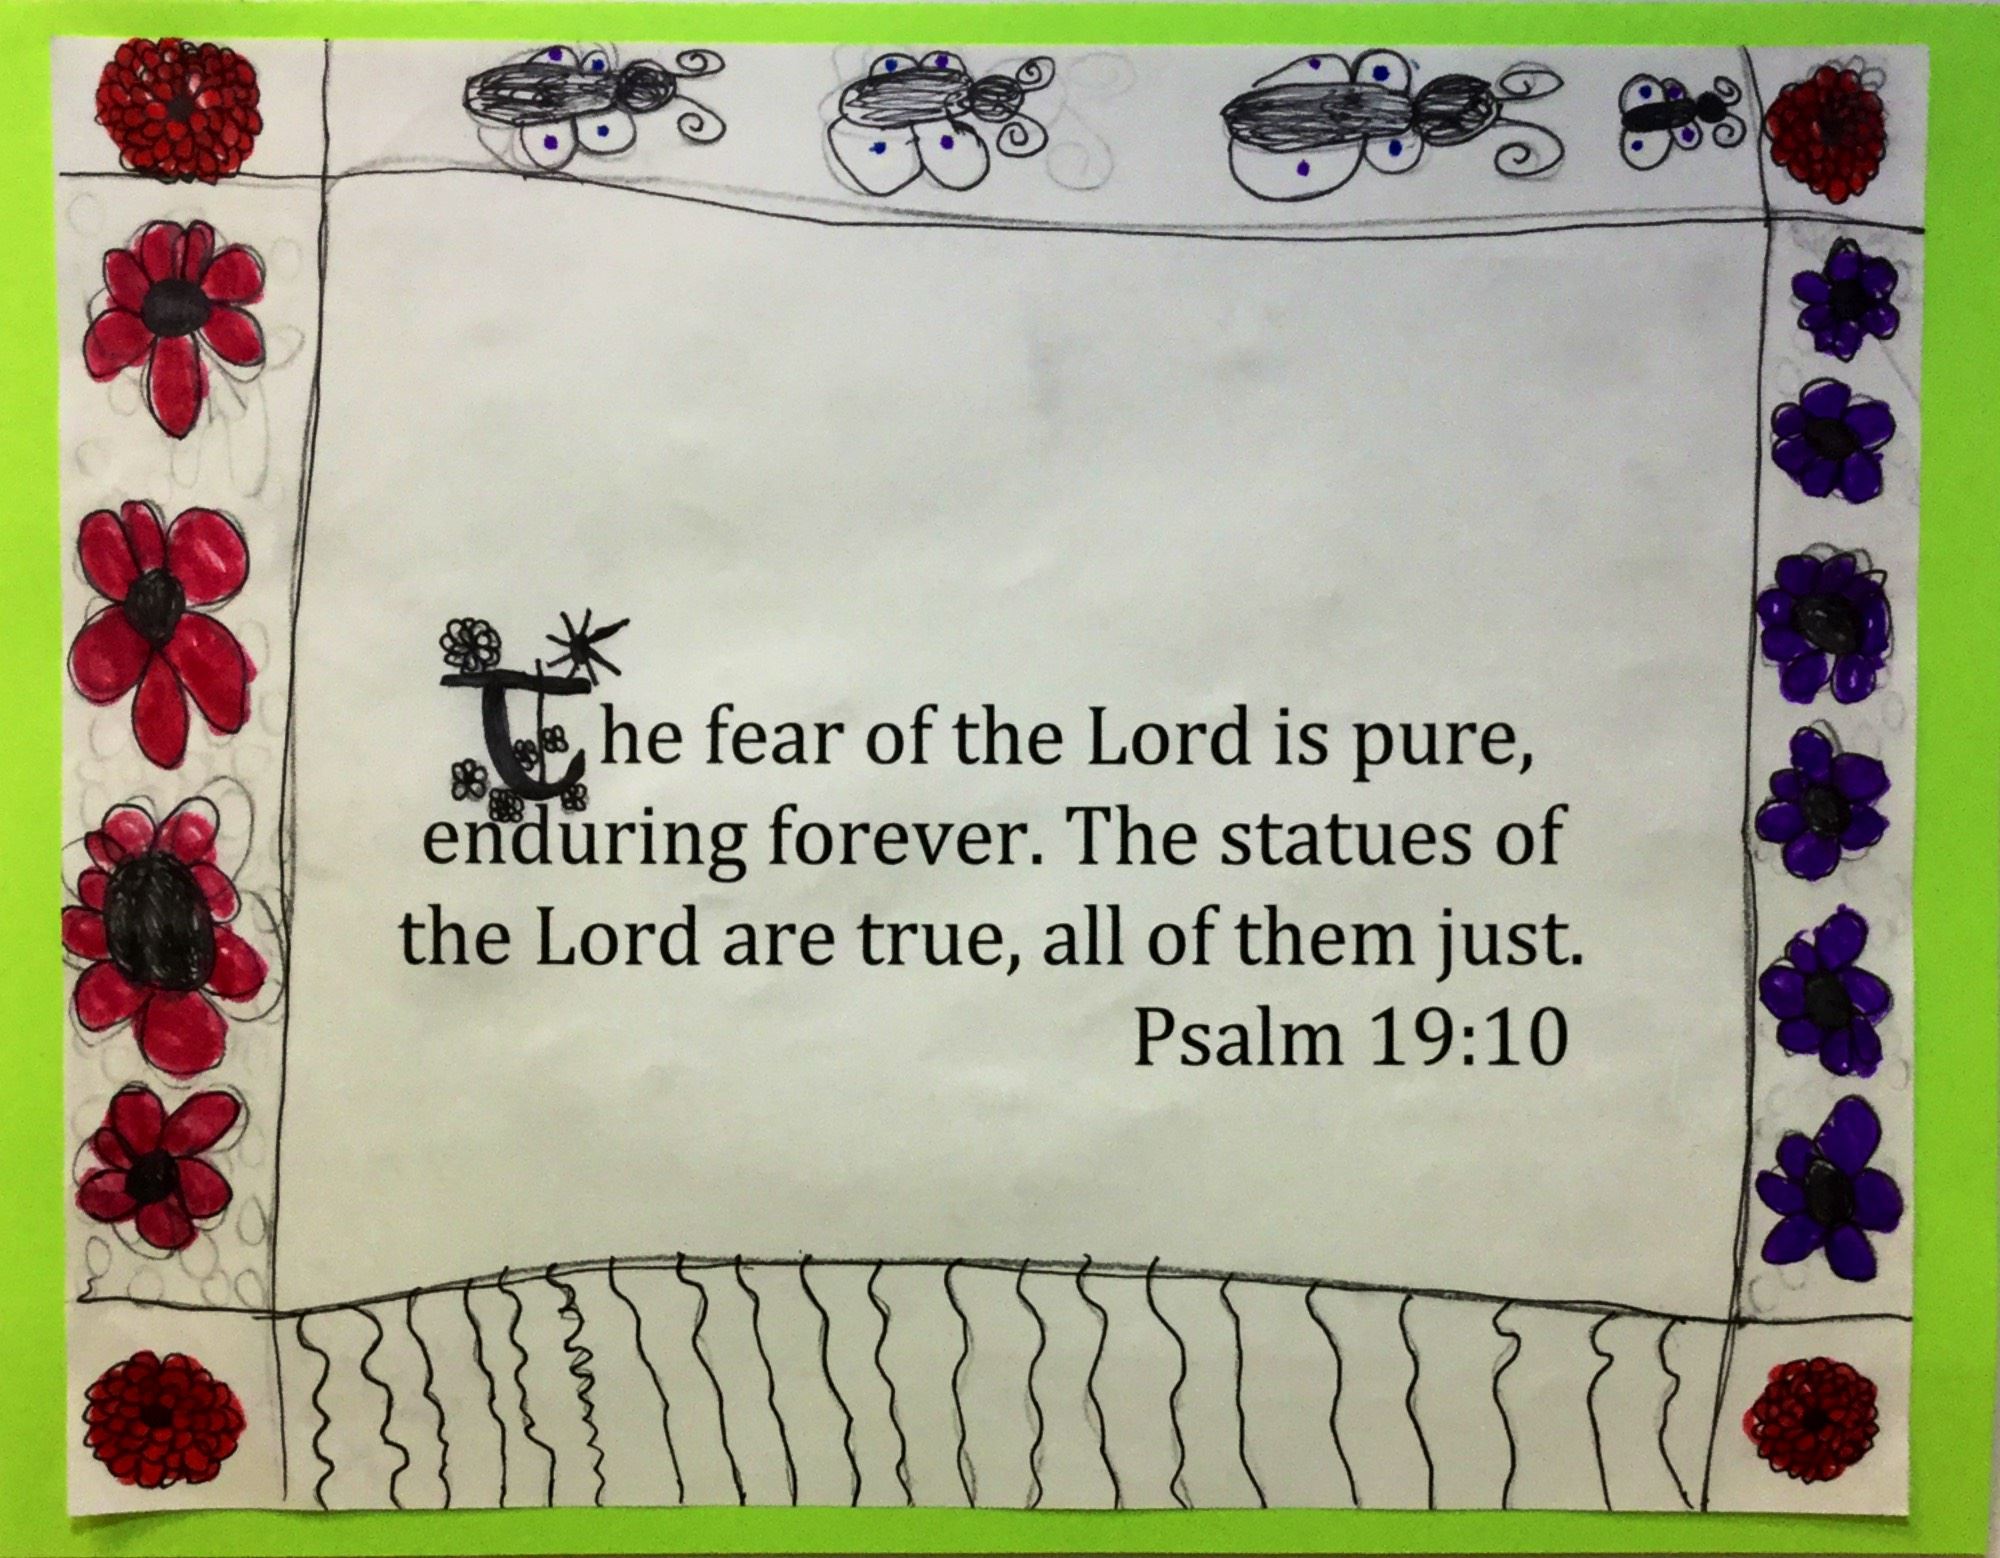 The fear of the Lord is pure,
enduring forever. The statues of
the Lord are true, all of them just.
Psalm 19:10